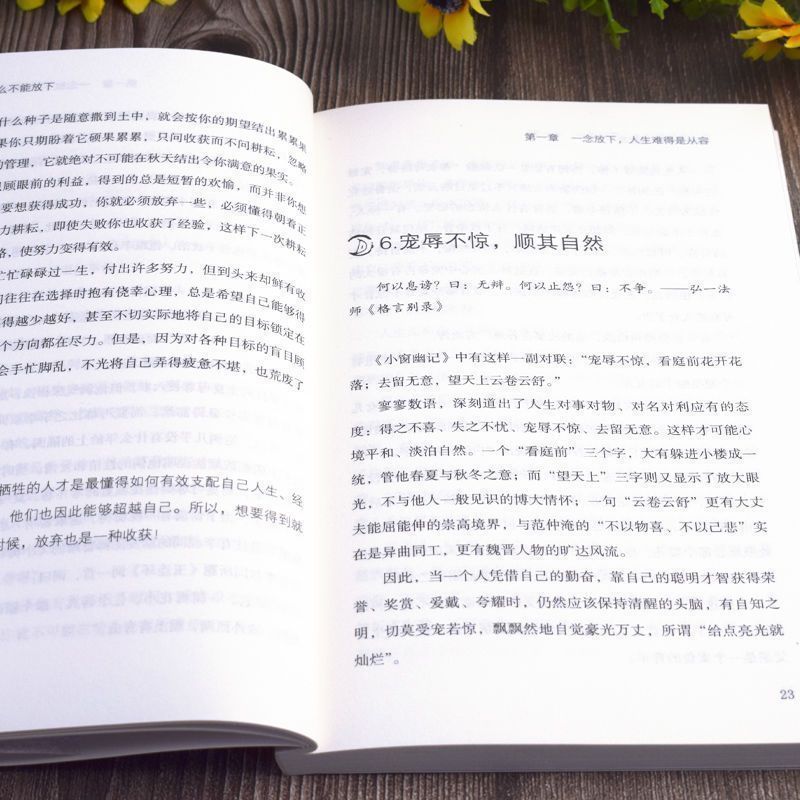 么不能放下
什么种子是随意撒到土中，就会按你的期望结出累累果
果你只期盼着它硕果累累，只问收获而不问耕耘，忽略
的管理，它就绝对不可能在秋天结出令你满意的果实。
顾眼前的利益，得到的总是短暂的欢愉，而并非你想
要想获得成功，你就必须放弃一些，必须懂得朝着正
力耕耘，即使失败你也收获了经验，这样下一次耕耘
，使努力变得有效。
忙忙碌碌过一生，付出许多努力，但到头来却鲜有收
们往往在选择时抱有侥幸心理，总是希望自己能够得
得越少越好，甚至不切实际地将自己的目标锁定在
个方向都在尽力。但是，因为对各种目标的盲目顾
会手忙脚乱，不光将自己弄得疲惫不堪，也荒废了
牺牲的人才是最懂得如何有效支配自己人生、经
他们也因此能够超越自己。所以，想要得到就
时候，放弃也是一种收获！
第一章 一念放下，人生难得是从容
6.宠辱不惊，顺其自然
何以息谤？曰：无辩。何以止怨？曰：不争。——弘一法
师《格言别录》
《小窗幽记》中有这样一副对联：“宠辱不惊，看庭前花开花
落；去留无意，望天上云卷云舒。”
寥寥数语，深刻道出了人生对事对物、对名对利应有的态
度：得之不喜、失之不忧、宠辱不惊、去留无意。这样才可能心
境平和、淡泊自然。一个“看庭前”三个字，大有躲进小楼成一
统，管他春夏与秋冬之意；而“望天上”三字则又显示了放大眼
光，不与他人一般见识的博大情怀；一句“云卷云舒”更有大丈
夫能屈能伸的崇高境界，与范仲淹的“不以物喜、不以己悲”实
在是异曲同工，更有魏晋人物的旷达风流。
因此，当一个人凭借自己的勤奋，靠自己的聪明才智获得荣
誉、奖赏、爱戴、夸耀时，仍然应该保持清醒的头脑，有自知之
明，切莫受宠若惊，飘飘然地自觉豪光万丈，所谓“给点亮光就
灿烂”。
23